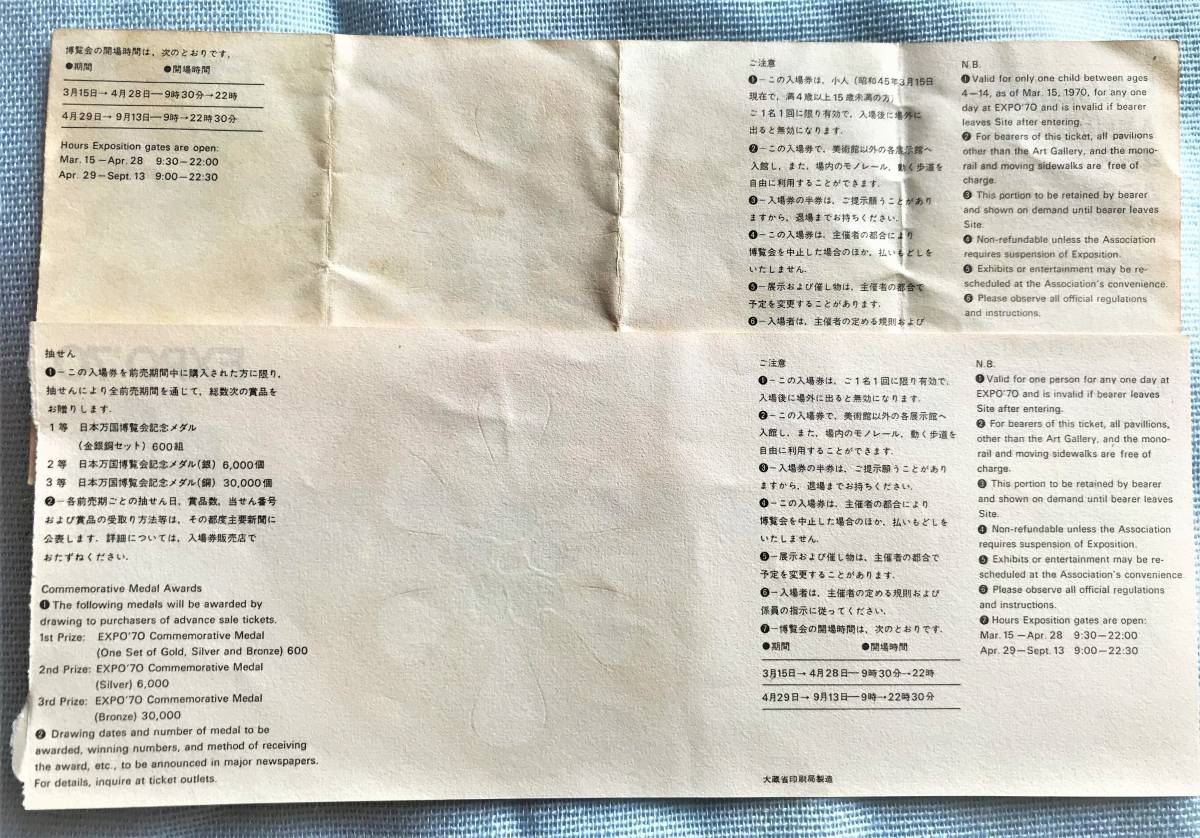 博覧会の開場時間は、次のとおりです。
●期間 ●開場時間
3月15日→ 4月28日─9時30分→22時
4月29日→ 9月13日─9時→22時30分
Hours Exposition gates are open:
Mar. 15－Apr. 28 9:30－22:00
Apr. 29－Sept. 13 9:00－22:30
ご注意
❶－この入場券は、小人(昭和45年3月15日
現在で、満4歳以上15歳未満の方)
ご1名1回に限り有効で、入場後に場外に
出ると無効になります.
❷－この入場券で、美術館以外の各展示館へ
入館し、また、場内のモノレール、動く歩道を
自由に利用することができます.
❸－入場券の半券は、ご提示願うことがあり
ますから、退場までお持ちください.
❹－この入場券は、主催者の都合により
博覧会を中止した場合のほか、払いもどしを
いたしません.
❺－展示および催し物は、主催者の都合で
予定を変更することがあります.
❻－入場者は、主催者の定める規則および
N.B.
❶ Valid for only one child between ages
4－14, as of Mar. 15, 1970, for any one
day at EXPO'70 and is invalid if bearer
leaves Site after entering.
❷ For bearers of this ticket, all pavilions
other than the Art Gallery, and the mono-
rail and moving sidewalks are free of
charge.
❸ This portion to be retained by bearer
and shown on demand until bearer leaves
Site.
❹ Non-refundable unless the Association
requires suspension of Exposition.
❺ Exhibits or entertainment may be re-
scheduled at the Association's convenience.
❻ Please observe all official regulations
and instructions.
抽せん
❶－この入場券を前売期間中に購入された方に限り、
抽せんにより全前売期間を通じて、総数次の賞品を
お贈りします.
1等 日本万国博覧会記念メダル
(金銀銅セット) 600組
2等 日本万国博覧会記念メダル(銀) 6,000個
3等 日本万国博覧会記念メダル(銅) 30,000個
❷－各前売期ごとの抽せん日、賞品数、当せん番号
および賞品の受取り方法等は、その都度主要新聞に
公表します. 詳細については、入場券販売店で
おたずねください.
Commemorative Medal Awards
❶ The following medals will be awarded by
drawing to purchasers of advance sale tickets.
1st Prize: EXPO'70 Commemorative Medal
(One Set of Gold, Silver and Bronze) 600
2nd Prize: EXPO'70 Commemorative Medal
(Silver) 6,000
3rd Prize: EXPO'70 Commemorative Medal
(Bronze) 30,000
❷ Drawing dates and number of medal to be
awarded, winning numbers, and method of receiving
the award, etc., to be announced in major newspapers.
For details, inquire at ticket outlets.
ご注意
❶－この入場券は、ご1名1回に限り有効で、
入場後に場外に出ると無効になります.
❷－この入場券で、美術館以外の各展示館へ
入館し、また、場内のモノレール、動く歩道を
自由に利用することができます.
❸－入場券の半券は、ご提示願うことがあり
ますから、退場までお持ちください.
❹－この入場券は、主催者の都合により
博覧会を中止した場合のほか、払いもどしを
いたしません.
❺－展示および催し物は、主催者の都合で
予定を変更することがあります.
❻－入場者は、主催者の定める規則および
係員の指示に従ってください.
❼－博覧会の開場時間は、次のとおりです.
●期間 ●開場時間
3月15日→ 4月28日─9時30分→22時
4月29日→ 9月13日─9時→22時30分
大蔵省印刷局製造
N.B.
❶ Valid for one person for any one day at
EXPO'70 and is invalid if bearer leaves
Site after entering.
❷ For bearers of this ticket, all pavilions,
other than the Art Gallery, and the mono-
rail and moving sidewalks are free of
charge.
❸ This portion to be retained by bearer
and shown on demand until bearer leaves
Site.
❹ Non-refundable unless the Association
requires suspension of Exposition.
❺ Exhibits or entertainment may be re-
scheduled at the Association's convenience
❻ Please observe all official regulations
and instructions.
❼ Hours Exposition gates are open:
Mar. 15－Apr. 28 9:30－22:00
Apr. 29－Sept. 13 9:00－22:30